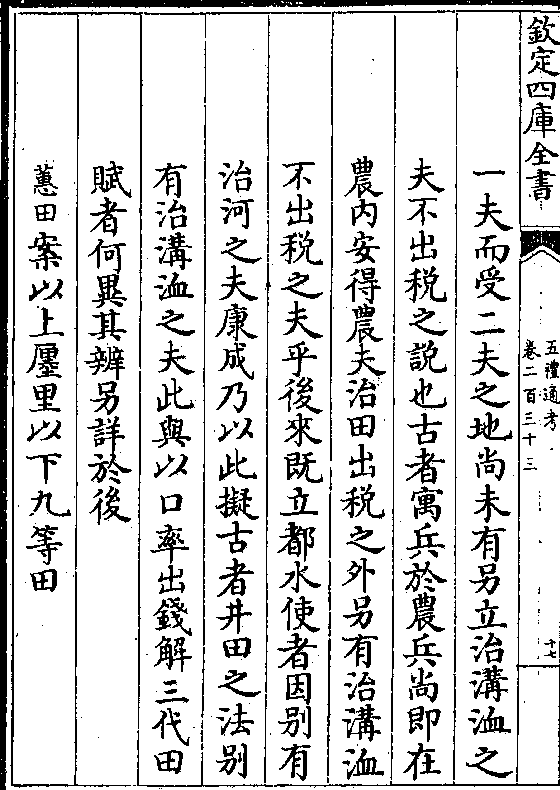 欽定四庫全書
五禮通考
卷二百三十三
十七
一夫而受二夫之地尚未有另立治溝洫之
夫不出税之說也古者寓兵於農兵尚即在
農内安得農夫治田出税之外另有治溝洫
不出税之夫乎後來既立都水使者因别有
治河之夫康成乃以此擬古者井田之法别
有治溝洫之夫此與以口率出錢解三代田
賦者何異其辨另詳於後
蕙田案以上廛里以下九等田